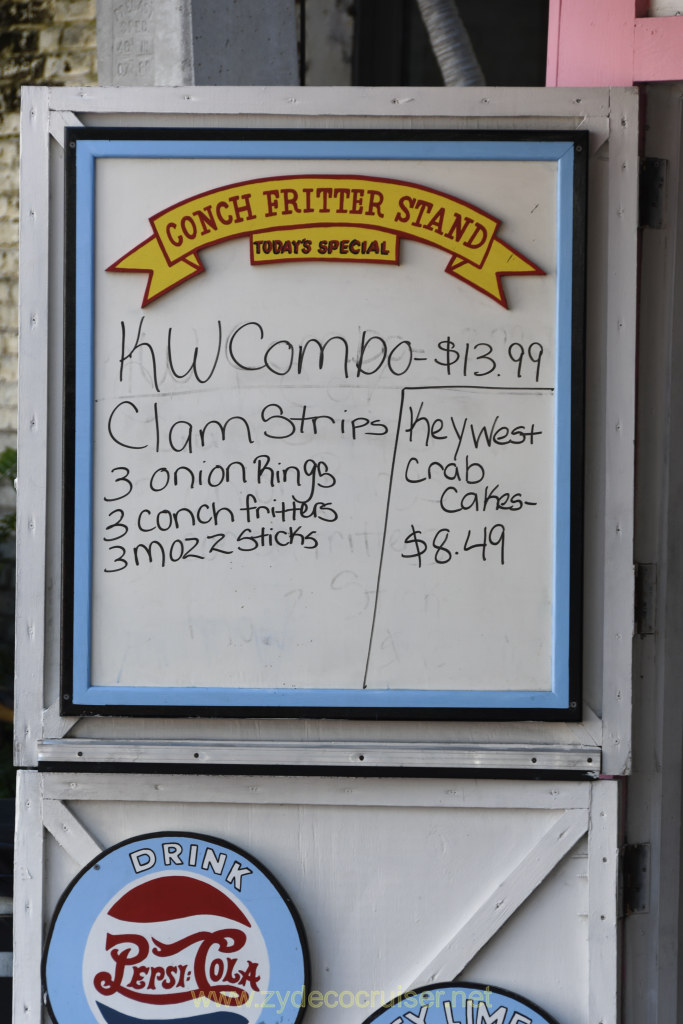 CONCH FRITTER STAND
TODAY'S SPECIAL
KW Combo - $13.99
Clam Strips
3 onion Rings
3 conch fritters
3 mozz sticks
Key West
Crab
Cakes-
$8.49
DRINK
PEPSI:COLA
www.zydecocruiser.net
LIME